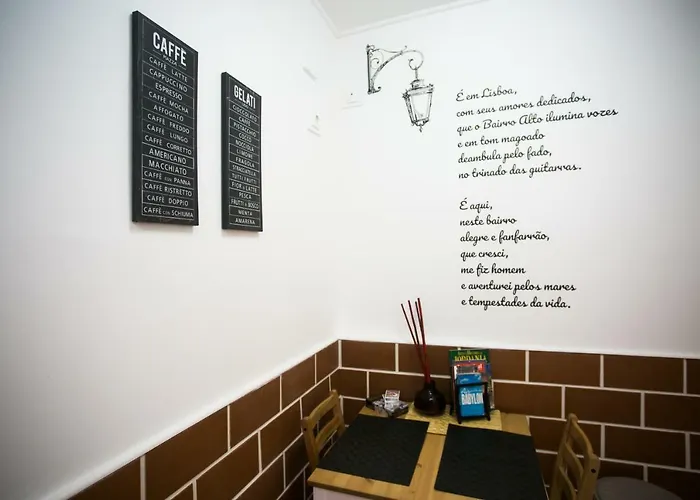 CAFFÈ
PIAZZA
CAFFÈ LATTE
CAPPUCCINO
ESPRESSO
CAFFÈ MOCHA
AFFOGATO
CAFFÈ FREDDO
CAFFÈ LUNGO
CAFFÈ CORRETTO
AMERICANO
MACCHIATO
CAFFÈ CON PANNA
CAFFÈ RISTRETTO
CAFFÈ DOPPIO
CAFFÈ CON SCHIUMA
GELATI
CIOCCOLATO
CAFFÈ
PISTACCHIO
NOCCIOLA
LIMONE
FRAGOLA
STRACCIATELLA
TUTTI FRUTTI
FIOR DI LATTE
PESCA
FRUTTI DI BOSCO
MENTA
AMARENA
É em Lisboa,
com seus amores dedicados,
que o Bairro Alto ilumina vozes
e em tom magoado
deambula pelo fado,
no trinado das guitarras.
É aqui,
neste bairro
alegre e fanfarrão,
que cresci,
me fiz homem
e aventurei pelos mares
e tempestades da vida.
BABYLON